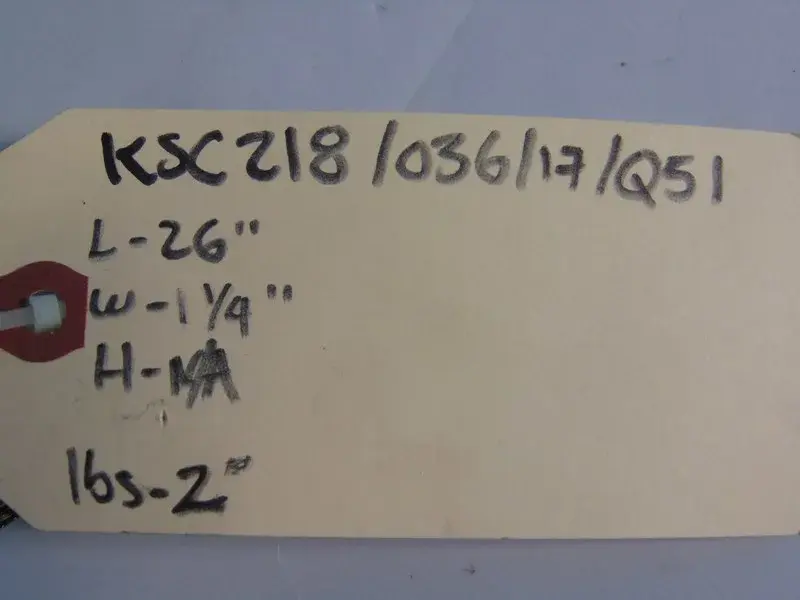 KSC218/036/17/Q51
L-26"
W-1 1/4"
H-N/A
lbs-2"